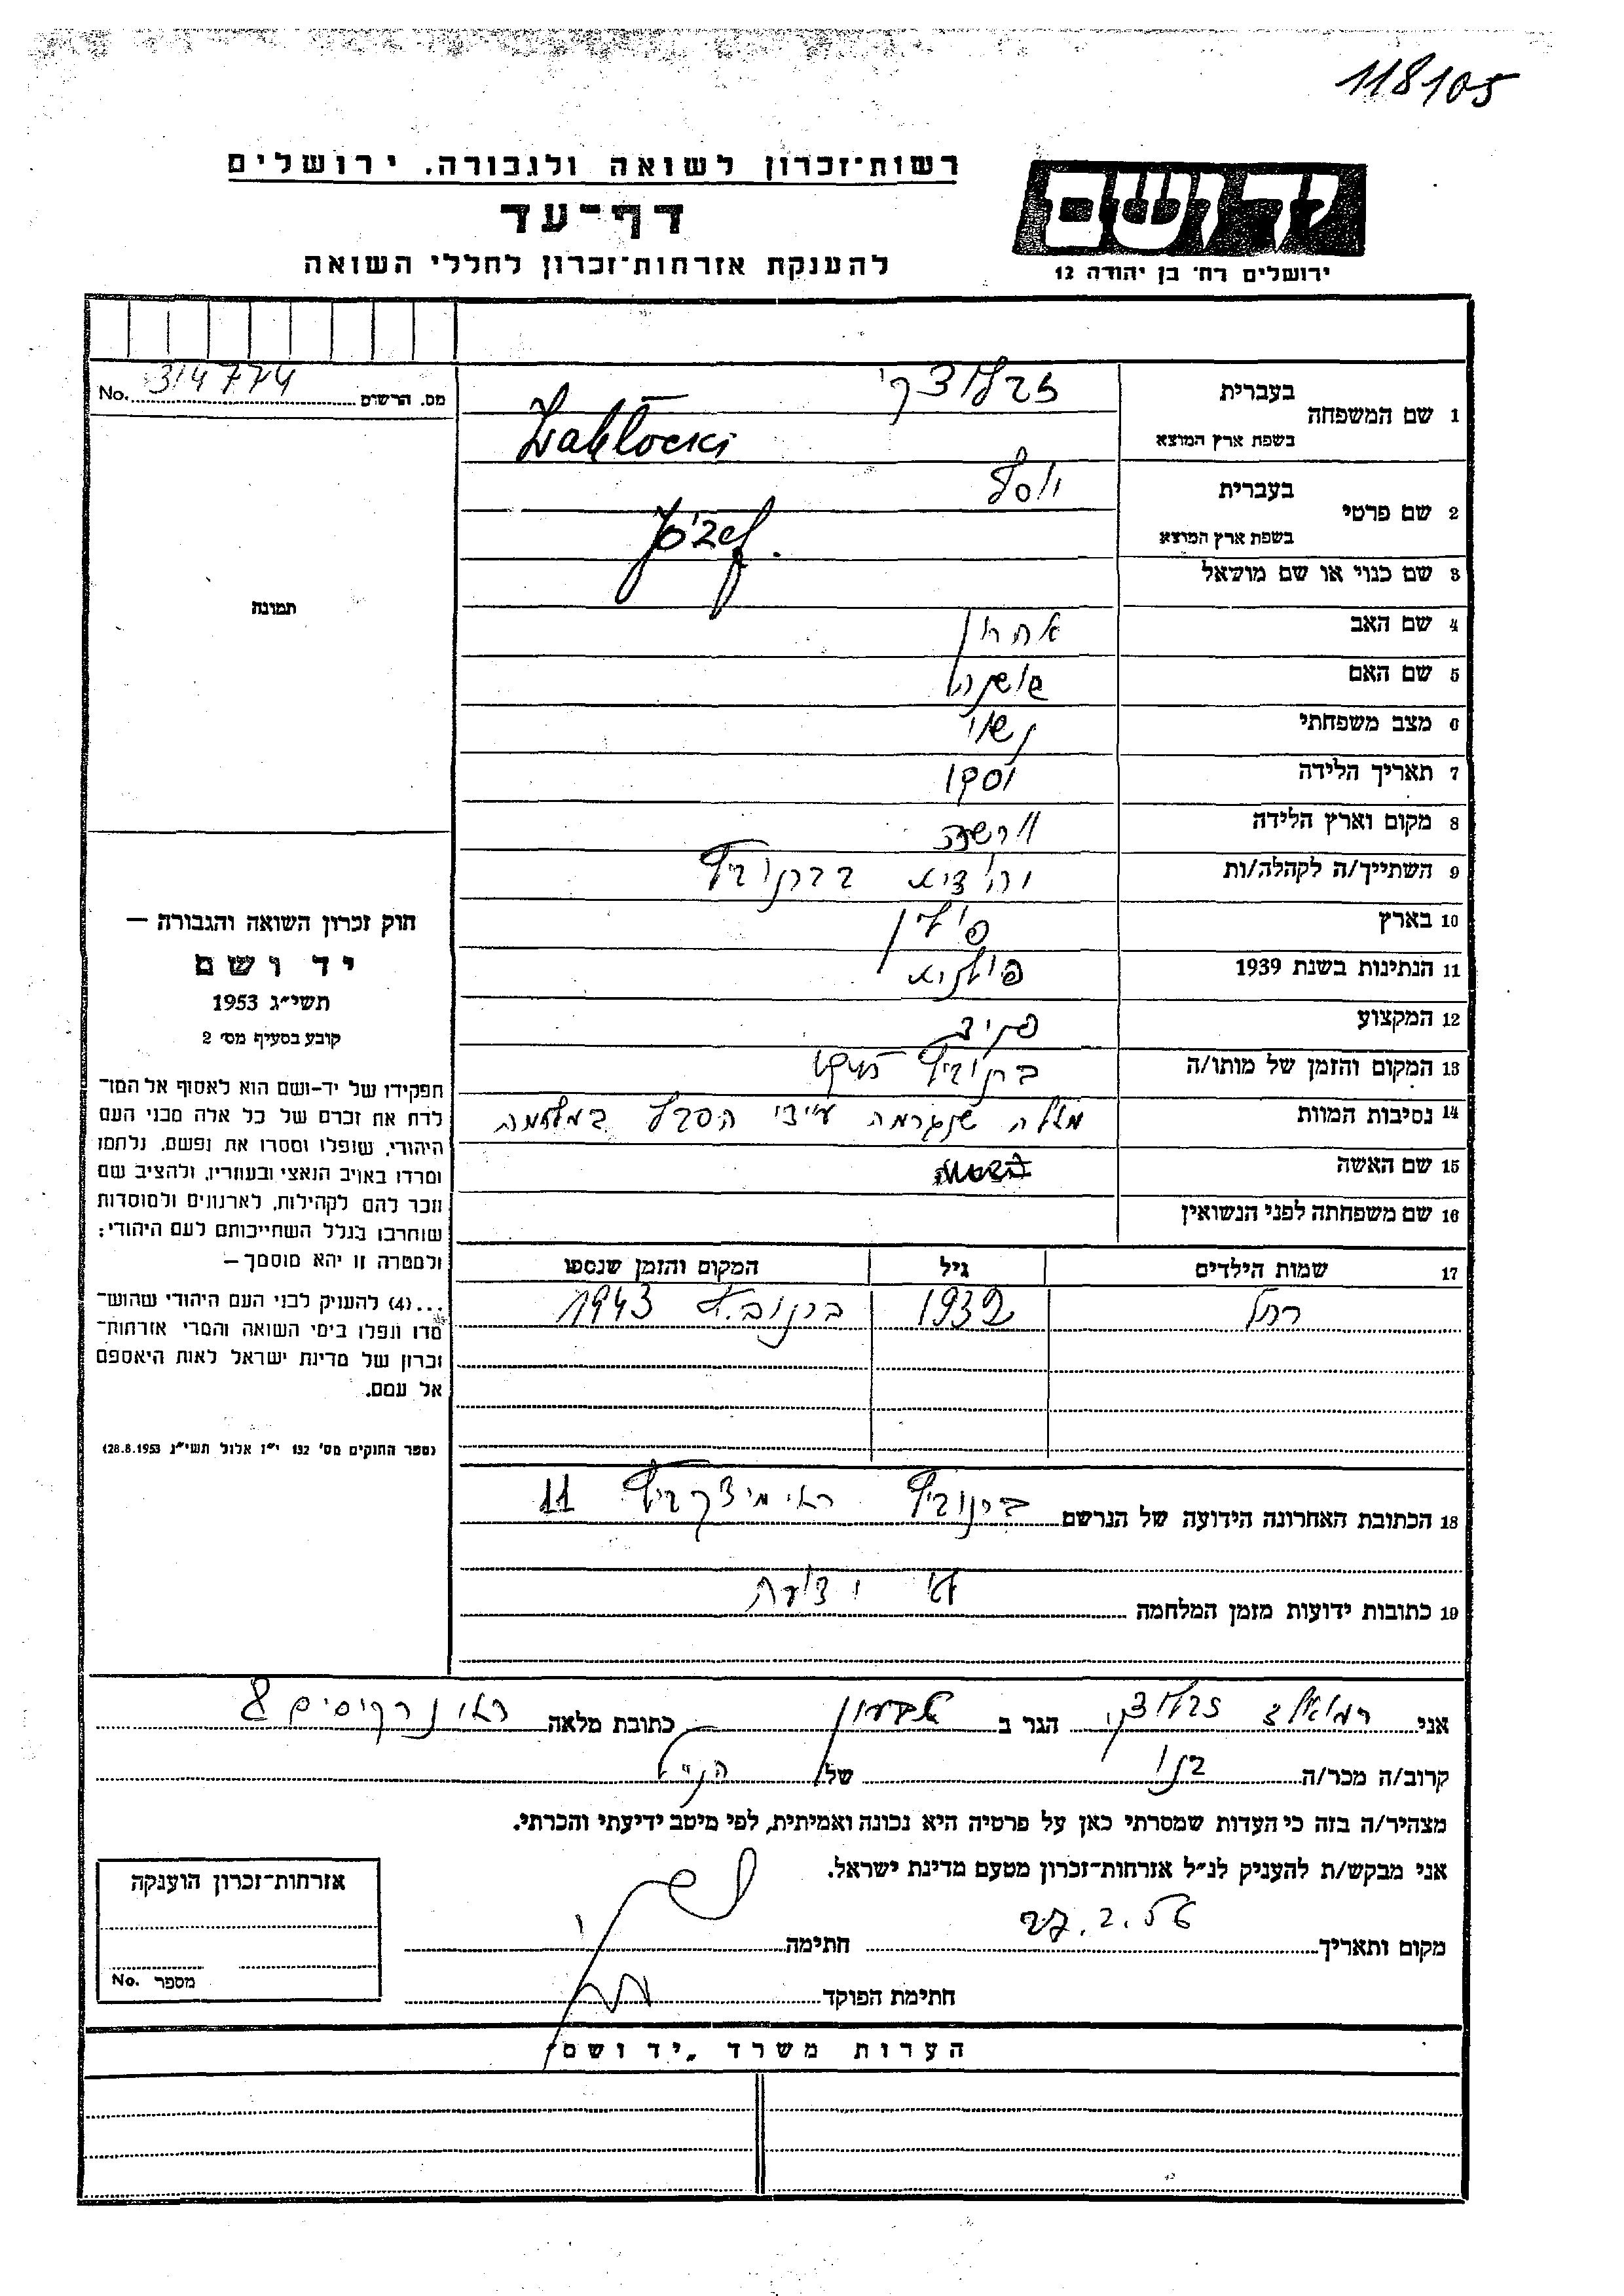 118105
רשות־זכרון לשואה ולגבורה, ירושלים
דף־עד
להענקת אזרחות־זכרון לחללי השואה
יד ושם
ירושלים רח' בן יהודה 12
מס. הרשום 314774 No.
1 שם המשפחה
בעברית זבלוצקי
בשפת ארץ המוצא Zabłocki
2 שם פרטי
בעברית יוסף
בשפת ארץ המוצא Józef.
3 שם כנוי או שם מושאל
4 שם האב אהרון
5 שם האם שושנה
6 מצב משפחתי נשוי
7 תאריך הלידה
8 מקום וארץ הלידה וורשה
9 השתייך/ה לקהלה/ות
10 בארץ פולין
11 הנתינות בשנת 1939 פולניא
12 המקצוע פקיד
13 המקום והזמן של מותו/ה
14 נסיבות המוות מחלה שנגרמה ע״י הסבל במלחמה
15 שם האשה
16 שם משפחתה לפני הנשואין
17 שמות הילדים גיל המקום והזמן שנספו
רחל 1932 1943
18 הכתובת האחרונה הידועה של הנרשם 11
19 כתובות ידועות מזמן המלחמה לא ידועת
תמונה
חוק זכרון השואה והגבורה —
יד ושם
תשי״ג 1953
קובע בסעיף מס׳ 2
תפקידו של יד-ושם הוא לאסוף אל המו־
לדת את זכרם של כל אלה מבני העם
היהודי, שנפלו ומסרו את נפשם, נלחמו
ומרדו באויב הנאצי ובעוזריו, ולהציב שם
וזכר להם לקהילות, לארגונים ולמוסדות
שוחרבו בגלל השתייכותם לעם היהודי;
ולמטרה זו יהא מוסמך —
...(4) להעניק לבני העם היהודי שהוש־
מדו ונפלו בימי השואה והמרי אזרחות־
זכרון של מדינת ישראל לאות היאספם
אל עמם.
(ספר החוקים מס׳ 132 י״ז אלול תשי״ג 28.8.1953)
אני זבלוצקי הגר ב טבעון כתובת מלאה נרקיסים 8
קרוב/ה מכר/ה בנו של הנ״ל
מצהיר/ה בזה כי העדות שמסרתי כאן על פרטיה היא נכונה ואמיתית, לפי מיטב ידיעתי והכרתי.
אני מבקש/ת להעניק לנ״ל אזרחות־זכרון מטעם מדינת ישראל.
מקום ותאריך 27.2.56 חתימה
חתימת הפוקד
אזרחות־זכרון הוענקה
מספר No.
הערות משרד „יד ושם״